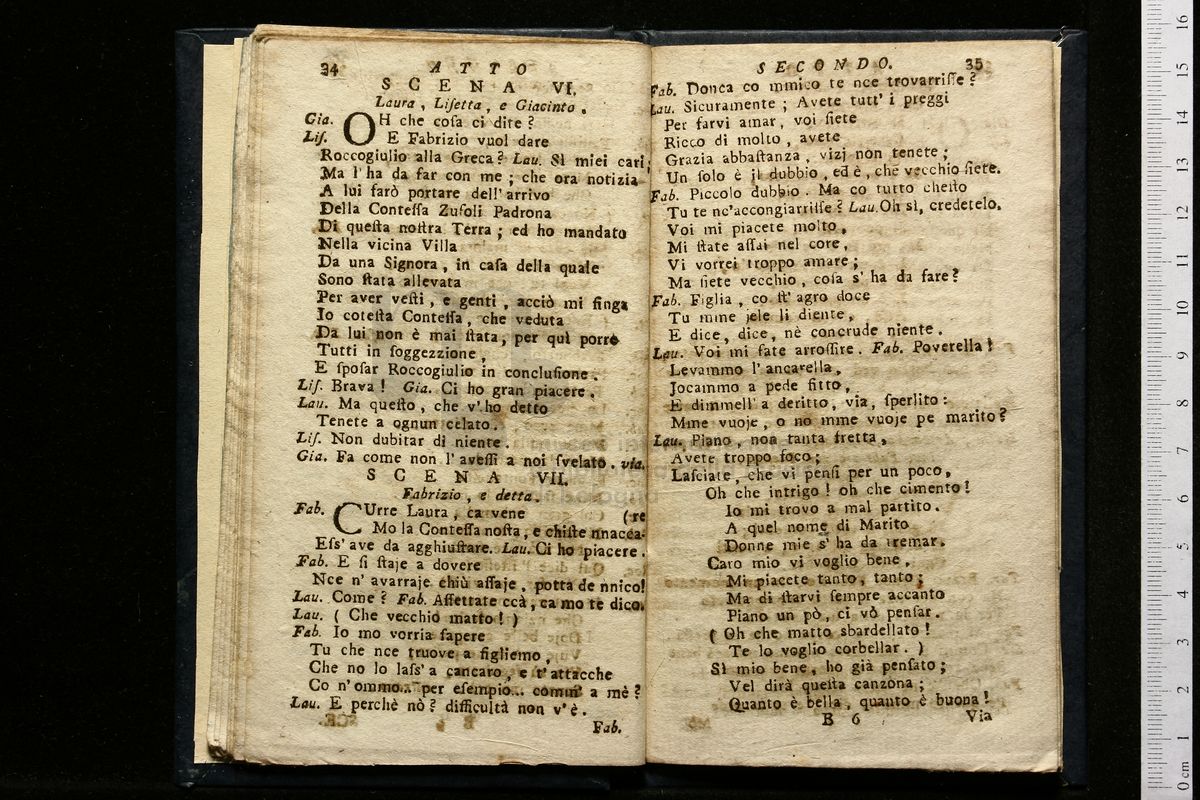 34 ATTO
SCENA VI.
Laura, Liſetta, e Giacinto.
Gia. OH che coſa ci dite?
Liſ. E Fabrizio vuol dare
Roccogiulio alla Greca? Lau. Sì miei cari;
Ma l'ha da far con me; che ora notizia
A lui farò portare dell'arrivo
Della Conteſſa Zuſoli Padrona
Di queſta noſtra Terra; ed ho mandato
Nella vicina Villa
Da una Signora, in caſa della quale
Sono ſtata allevata
Per aver veſti, e genti, acciò mi finga
Io coteſta Conteſſa, che veduta
Da lui non è mai ſtata, per quì porre
Tutti in ſoggezzione,
E ſpoſar Roccogiulio in concluſione.
Liſ. Brava! Gia. Ci ho gran piacere.
Lau. Ma queſto, che v'ho detto
Tenete a ognun celato.
Liſ. Non dubitar di niente.
Gia. Fa come non l'aveſſi a noi ſvelato. via.
SCENA VII.
Fabrizio, e detta.
Fab. CUrre Laura, ca vene (re
Mo la Conteſſa noſta, e chiſte nnacca-
Eſs'ave da agghiuſtare. Lau. Ci ho piacere.
Fab. E ſi ſtaje a dovere
Nce n'avarraje chiù aſſaje, potta de nnico!
Lau. Come? Fab. Aſſettate ccà, ca mo te dico.
Lau. (Che vecchio matto!)
Fab. Io mo vorria ſapere
Tu che nce truove a figliemo,
Che no lo laſs'a cancaro, e t'attacche
Co n'ommo... per eſempio... comm' a mè?
Lau. E perchè nò? difficultà non v'è.
Fab.
SECONDO. 35
Fab. Donca co mmico te nce trovarriſſe?
Lau. Sicuramente; Avete tutt'i preggi
Per farvi amar, voi ſiete
Ricco di molto, avete
Grazia abbaſtanza, vizj non tenete;
Un ſolo è il dubbio, ed è, che vecchio ſiete.
Fab. Piccolo dubbio. Ma co tutto cheſto
Tu te nc'accongiarriſſe? Lau. Oh sì, credetelo.
Voi mi piacete molto,
Mi ſtate aſſai nel core,
Vi vorrei troppo amare;
Ma ſiete vecchio, coſa s'ha da fare?
Fab. Figlia, co ſt'agro doce
Tu mme jele li diente,
E dice, dice, nè concrude niente.
Lau. Voi mi fate arroſſire. Fab. Poverella!
Levammo l'ancarella,
Jocammo a pede fitto,
E dimmell'a deritto, via, ſperlito:
Mme vuoje, o no mme vuoje pe marito?
Lau. Piano, non tanta fretta,
Avete troppo foco;
Laſciate, che vi penſi per un poco,
Oh che intrigo! oh che cimento!
Io mi trovo a mal partito.
A quel nome di Marito
Donne mie s'ha da tremar.
Caro mio vi voglio bene,
Mi piacete tanto, tanto;
Ma di ſtarvi ſempre accanto
Piano un pò, ci vò penſar.
(Oh che matto sbardellato!
Te lo voglio corbellar.)
Sì mio bene, ho già penſato;
Vel dirà queſta canzona;
Quanto è bella, quanto è buona!
B 6 Via